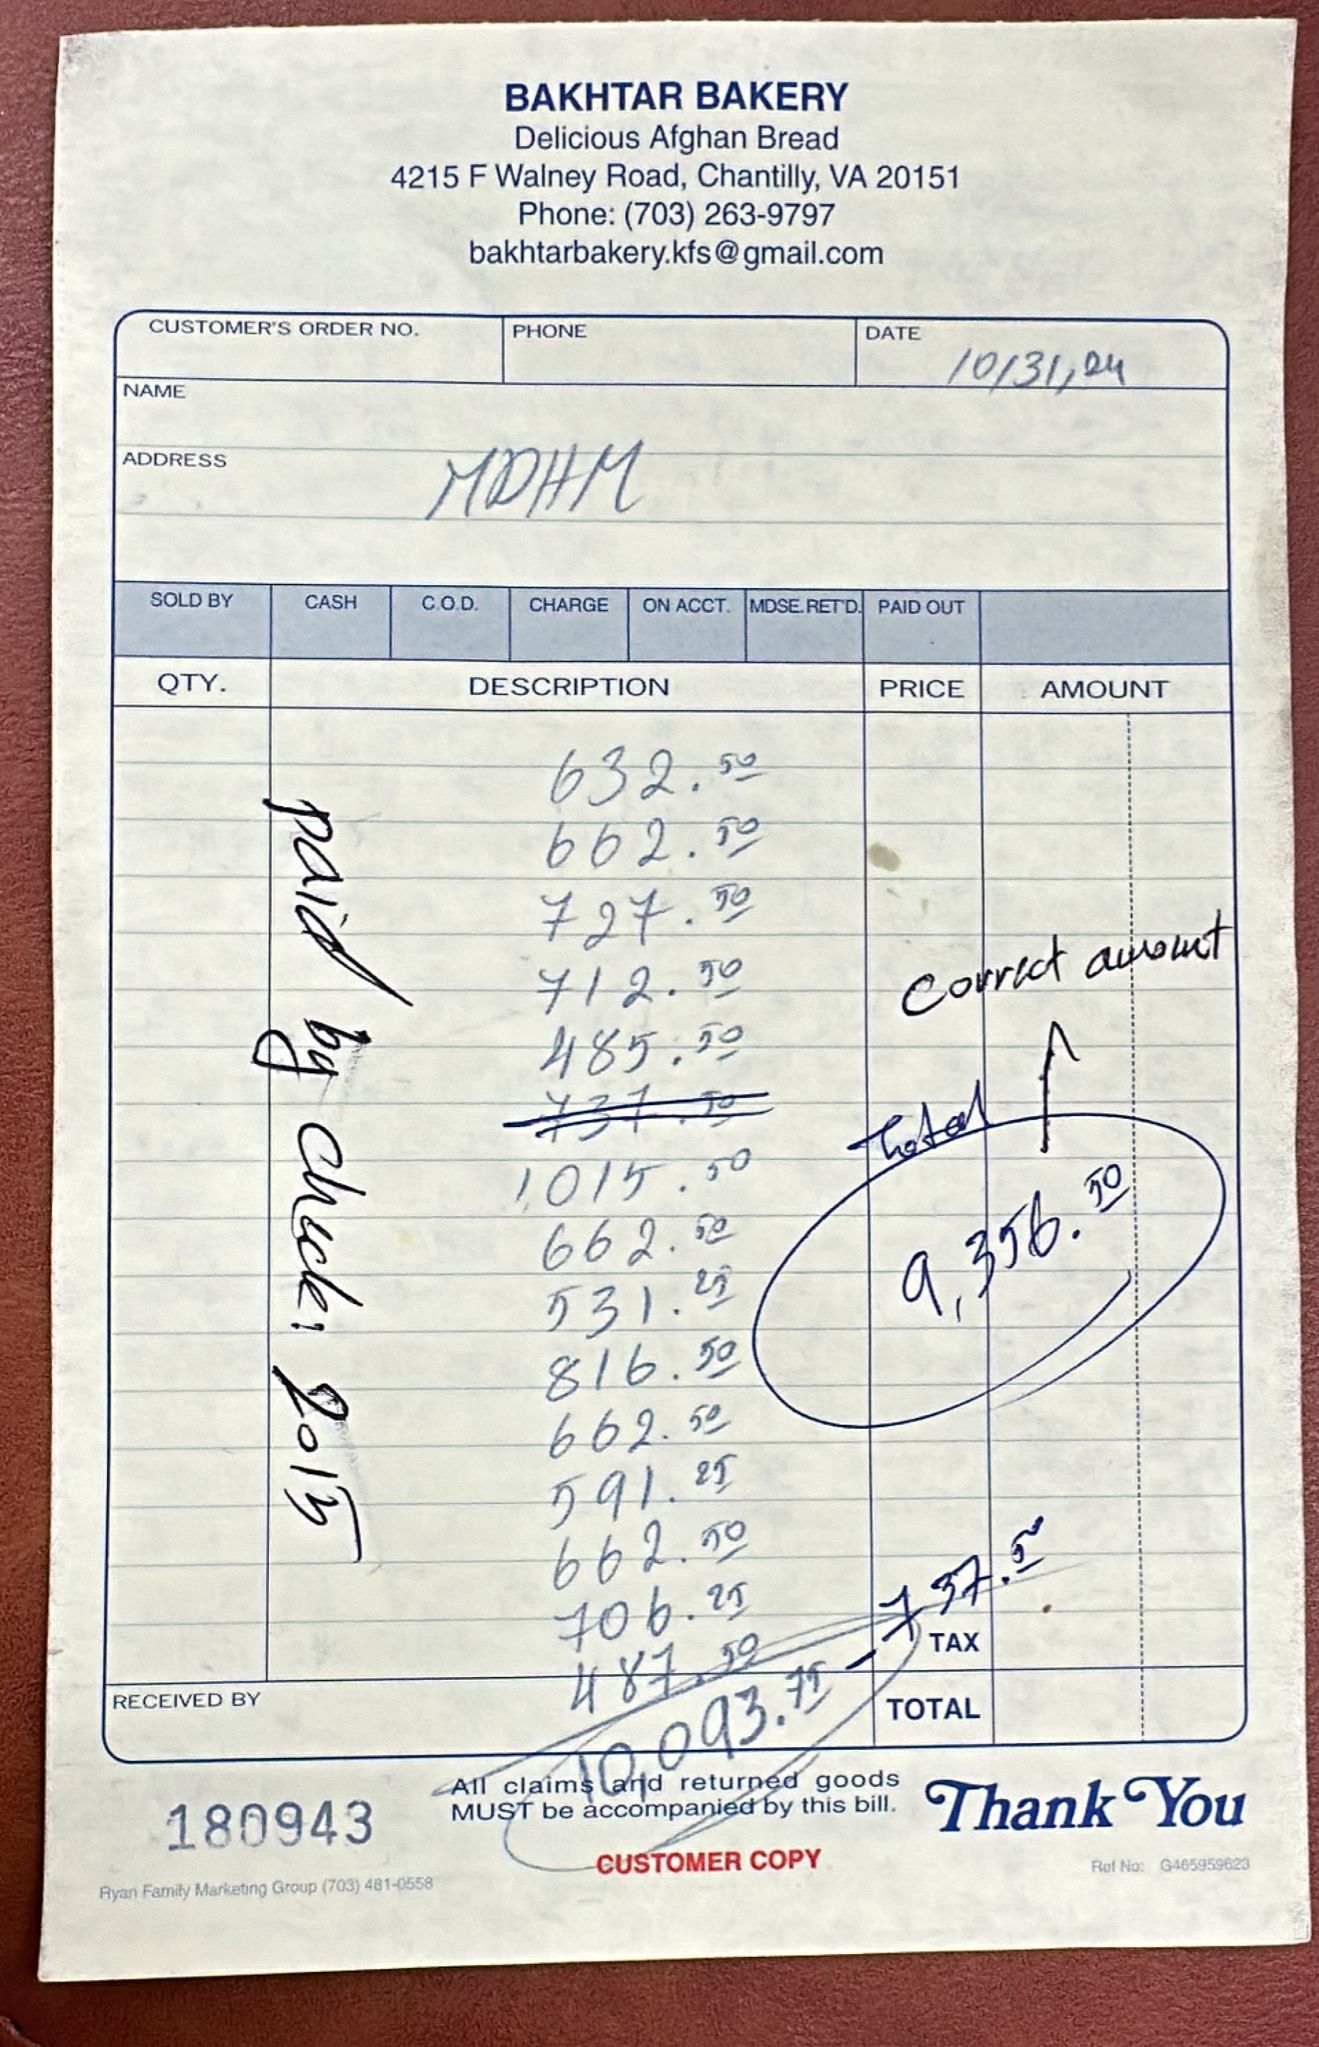 BAKHTAR BAKERY
Delicious Afghan Bread
4215 F Walney Road, Chantilly, VA 20151
Phone: (703) 263-9797
bakhtarbakery.kfs@gmail.com
CUSTOMER'S ORDER NO. PHONE DATE 10/31,24
NAME
ADDRESS MDHM
SOLD BY CASH C.O.D. CHARGE ON ACCT. MDSE. RET'D. PAID OUT
QTY. DESCRIPTION PRICE AMOUNT
632.50
662.50
727.50
712.50
485.50
737.50
1,015.50
662.50
531.25
816.50
662.50
591.25
662.50
706.25
487.50
10,093.75
- 737.50
paid by check: 2015
Correct amount
Total
9,356.50
TAX
RECEIVED BY TOTAL
180943
All claims and returned goods
MUST be accompanied by this bill.
Thank You
CUSTOMER COPY
Ref No: G465959623
Ryan Family Marketing Group (703) 481-0558